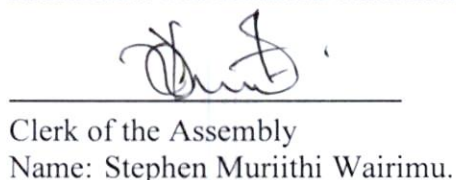 Clerk of the Assembly
Name: Stephen Muriithi Wairimu.